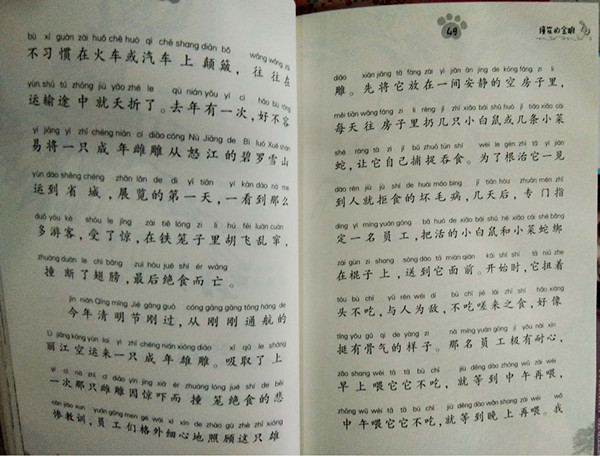 bù xí guàn zài huǒ chē huò qì chē shang diān bǒ wǎng wǎng zài
不习惯在火车或汽车上颠簸，往往在
yùn shū tú zhōng jiù yāo zhé le qù nián yǒu yí cì hǎo bù róng
运输途中就夭折了。去年有一次，好不容
yì jiāng yì zhī chéng nián cí diāo cóng Nù Jiāng de Bì luó Xuě shān
易将一只成年雌雕从怒江的碧罗雪山
yùn dào shěng chéng zhǎn lǎn de dì yī tiān yí kàn dào nà me
运到省城，展览的第一天，一看到那么
duō yóu kè shòu le jīng zài tiě lóng zi li hú fēi luàn cuàn
多游客，受了惊，在铁笼子里胡飞乱窜，
zhuàng duàn le chì bǎng zuì hòu jué shí ér wáng
撞断了翅膀，最后绝食而亡。
jīn nián Qīng míng Jié gāng guò cóng gāng gāng tōng háng de
今年清明节刚过，从刚刚通航的
Lì jiāng kōng yùn lai yì zhī chéng nián xióng diāo xī qǔ le shàng
丽江空运来一只成年雄雕。吸取了上
yí cì nà zhī cí diāo yīn jīng xià ér zhuàng lóng jué shí de bēi
一次那只雌雕因惊吓而撞笼绝食的悲
cǎn jiào xun yuán gōng men gé wài xì xīn de zhào gù zhè zhī xióng
惨教训，员工们格外细心地照顾这只雄
49
diāo xiān jiāng tā fàng zài yì jiān ān jìng de kōng fáng zi li
雕。先将它放在一间安静的空房子里，
měi tiān wǎng fáng zi li rēng jǐ zhī xiǎo bái shǔ huò jǐ tiáo xiǎo cài
每天往房子里扔几只小白鼠或几条小菜
shé ràng tā zì jǐ bǔ zhuō tūn shí wèi le gēn zhì tā yí jiàn
蛇，让它自己捕捉吞食。为了根治它一见
dào rén jiù jù shí de huài máo bìng jǐ tiān hòu zhuān mén zhǐ
到人就拒食的坏毛病，几天后，专门指
dìng yì míng yuán gōng bǎ huó de xiǎo bái shǔ hé xiǎo cài shé bǎng
定一名员工，把活的小白鼠和小菜蛇绑
zài gùn zi shang sòng dào tā miàn qián kāi shǐ shí tā niǔ zhe
在棍子上，送到它面前。开始时，它扭着
tóu bù chī yǔ rén wéi dí bù chī jiē lái zhī shí hǎo xiàng
头不吃，与人为敌，不吃嗟来之食，好像
tǐng yǒu gǔ qì de yàng zi nà míng yuán gōng jí yǒu nài xīn
挺有骨气的样子。那名员工极有耐心，
zǎo shang wèi tā tā bù chī jiù děng dào zhōng wǔ zài wèi
早上喂它它不吃，就等到中午再喂，
zhōng wǔ wèi tā tā bù chī jiù děng dào wǎn shang zài wèi wǒ
中午喂它它不吃，就等到晚上再喂。我